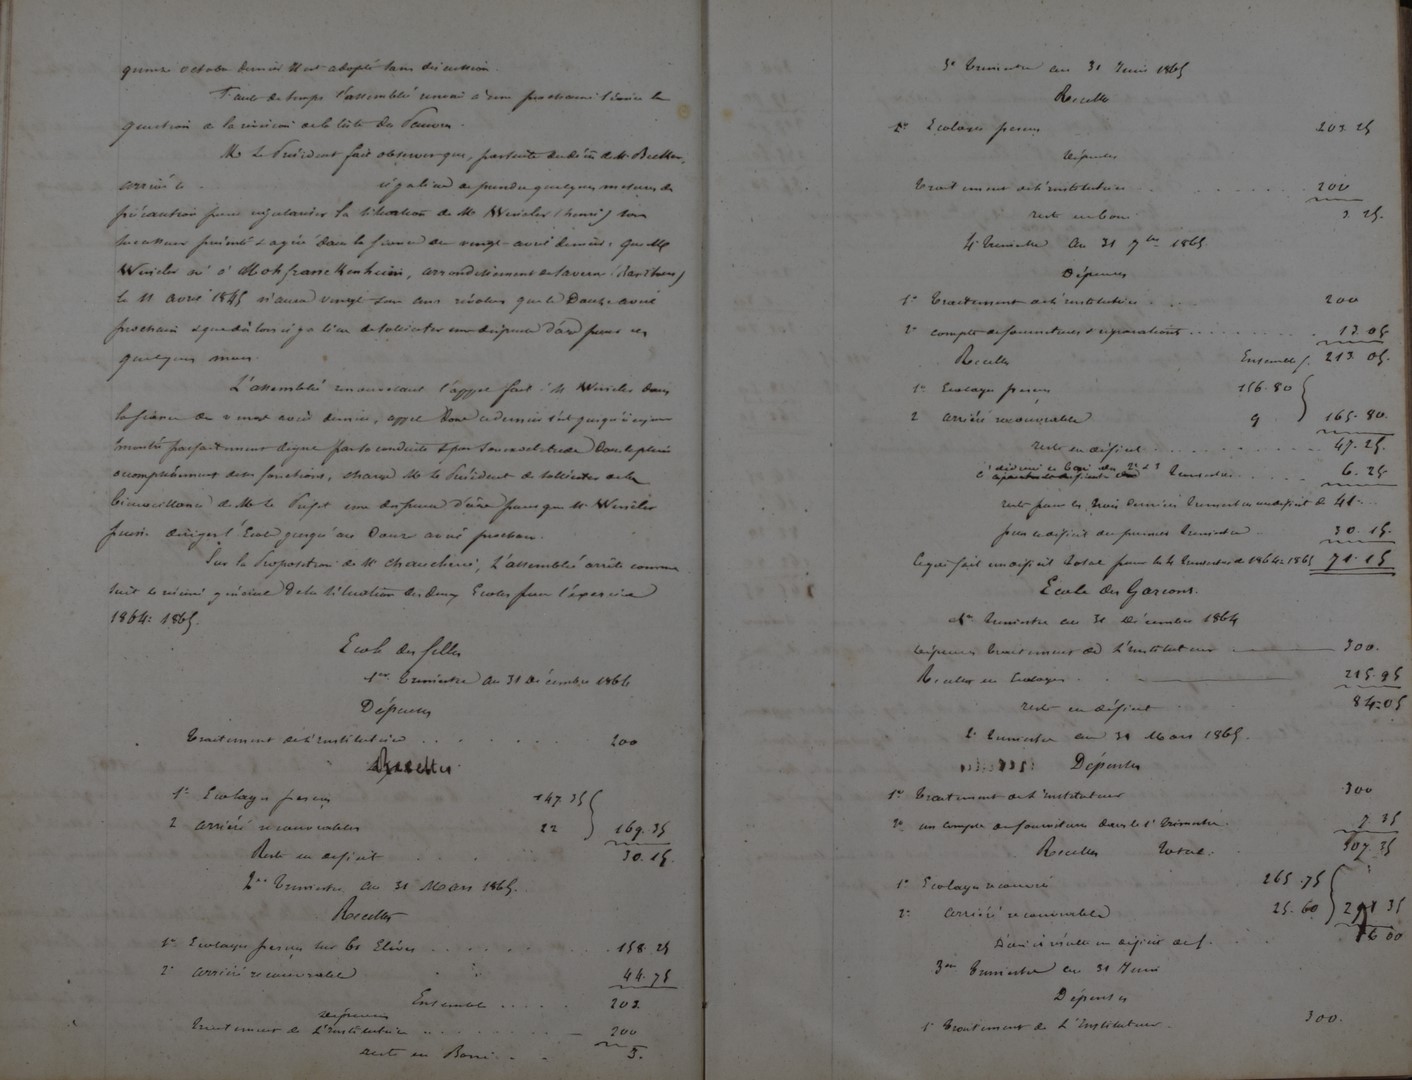 quinze octobre dernier est adopté sans discussion.
Faute de temps l'assemblée renvoi à une prochaine séance la
question de la révision de la liste des Pauvres.
M. le Président fait observer que, par suite du décès de M. Becker,
arrivé le . il y a lieu de prendre quelques mesures de
précaution pour régulariser la situation de M. Weixler (henri) son
successeur présenté & agréé dans la séance du vingt-avril dernier; que M.
Weixler né à Hohfranckenheim, arrondissement de Saverne (bas Rhin)
le 11 avril 1845 n'aura vingt ans révolus que le Douze avril
prochain & que dès lors il y a lieu de solliciter une dispense d'âge pour ces
quelques mois.
L'assemblée renouvelant l'appel fait à M. Weixler dans
la séance du avril dernier, appel dont ce dernier s'est jusqu'à ce jour
montré parfaitement digne par sa conduite & par son exactitude dans le plein
accomplissement de ses fonctions, charge M. le Président de solliciter de la
bienveillance de M. le Préfet une dispense d'âge pour que M. Weixler
puisse diriger l'Ecole jusqu'au Douze avril prochain.
Sur la Proposition de M. , L'assemblée arrête comme
suit le résumé général de la situation des deux Ecoles pour l'exercice
1864-1865.
Ecole des filles
1er trimestre au 31 décembre 1864
Dépenses
Traitement de l'institutrice . . . . . 200
Recettes
1° Ecolages perçus 147.35
2 arriéré recouvrable 22 } 169.35
Reste en déficit . . . 30.15.
2me trimestre au 31 Mars 1865.
Recettes
1° Ecolages perçus sur 61 Elèves . . . . . 158.25
2° arriéré recouvrable 44.75
Ensemble . . . . 203.
dépenses
Traitement de L'Institutrice . . . . . . 200
reste en Boni . . . 3.
3e trimestre au 31 Juin 1865
Recettes
1° Ecolages perçus 203.25
dépenses
Traitement de l'institutrice . . . . . . 200
reste en boni 3.25.
4e trimestre au 31 7bre 1865
Dépenses
1° Traitement de l'institutrice . . . . 200
2° compte de fournitures & réparations . . . . . . 13.05
Recettes Ensemble f. 213.05.
1° Ecolages perçus 156.80
2 arriéré recouvrable 9 } 165.80.
reste en déficit . . . . . . 47.25.
à déduire le boni des 2e & 3 trimestre . . . . 6.25
reste pour les trois derniers trimestres un déficit de 41 . .
plus le déficit du premier trimestre . . 30.15.
ce qui fait un déficit total pour les 4 trimestres de 1864-1865 71.15
Ecole des Garçons.
1er trimestre au 31 Décembre 1864
Dépenses Traitement de L'Instituteur 300.
Recettes en Ecolages . . 215.95
reste en déficit 84.05
2e trimestre au 31 Mars 1865.
Dépenses
1° Traitement de l'instituteur 300
2° un compte de fournitures dans le 1er trimestre . 7.35
Recettes Total . . 307.35
1° Ecolage recouvré 265.75
2° arriéré recouvrable 25.60 } 291.35
D'où il résulte un déficit de f. . . 16.00
3me trimestre au 31 Juin
Dépenses
1° Traitement de L'Instituteur . 300.